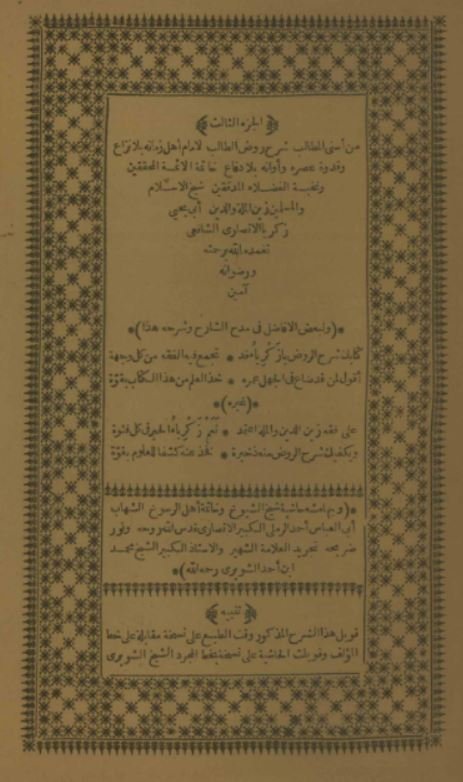 ﴿الجزء الثالث﴾
من أسنى المطالب شرح روض الطالب لامام أهل زمانه بلا نزاع
وقدوة عصره وأوانه بلا دفاع خاتمة الائمة المحققين
ونخبة الفضلاء المدققين شيخ الاسلام
والمسلمين زين الملة والدين أبي يحيى
زكريا الانصارى الشافعى
تغمده الله برحمته
ورضوانه
آمين
*(ولبعض الافاضل فى مدح الشارح وشرحه هذا)*
كتابك شرح الروض يا زكرياء قد * تجمع فيه الفقه من كل وجهة
أقول لمن قد ضاع فى الجهل عمره * خذ العلم من هذا الكتاب بقوة
*(غيره)*
على فقه زين الدين والملة اعتمد * نعم زكرياء الحبر فى كل فتوة
ويكفيك شرح الروض منه ذخيرة * فخذ عنه كشفا للعلوم بقوة
*(وبهامشه حاشية شيخ الشيوخ وخاتمة أهل الرسوخ الشهاب
أبى العباس أحمد الرملى الكبير الانصارى قدس الله روحه ونور
ضريحه تجريد العلامة الشهير والاستاذ الكبير الشيخ محمد
ابن أحمد الشوبرى رحمه الله)*
﴿تنبيه﴾
قوبل هذا الشرح المذكور وقت الطبع على نسخة مقابلة على خط
المؤلف وقوبلت الحاشية على نسخة بخط المجرد الشيخ الشوبرى